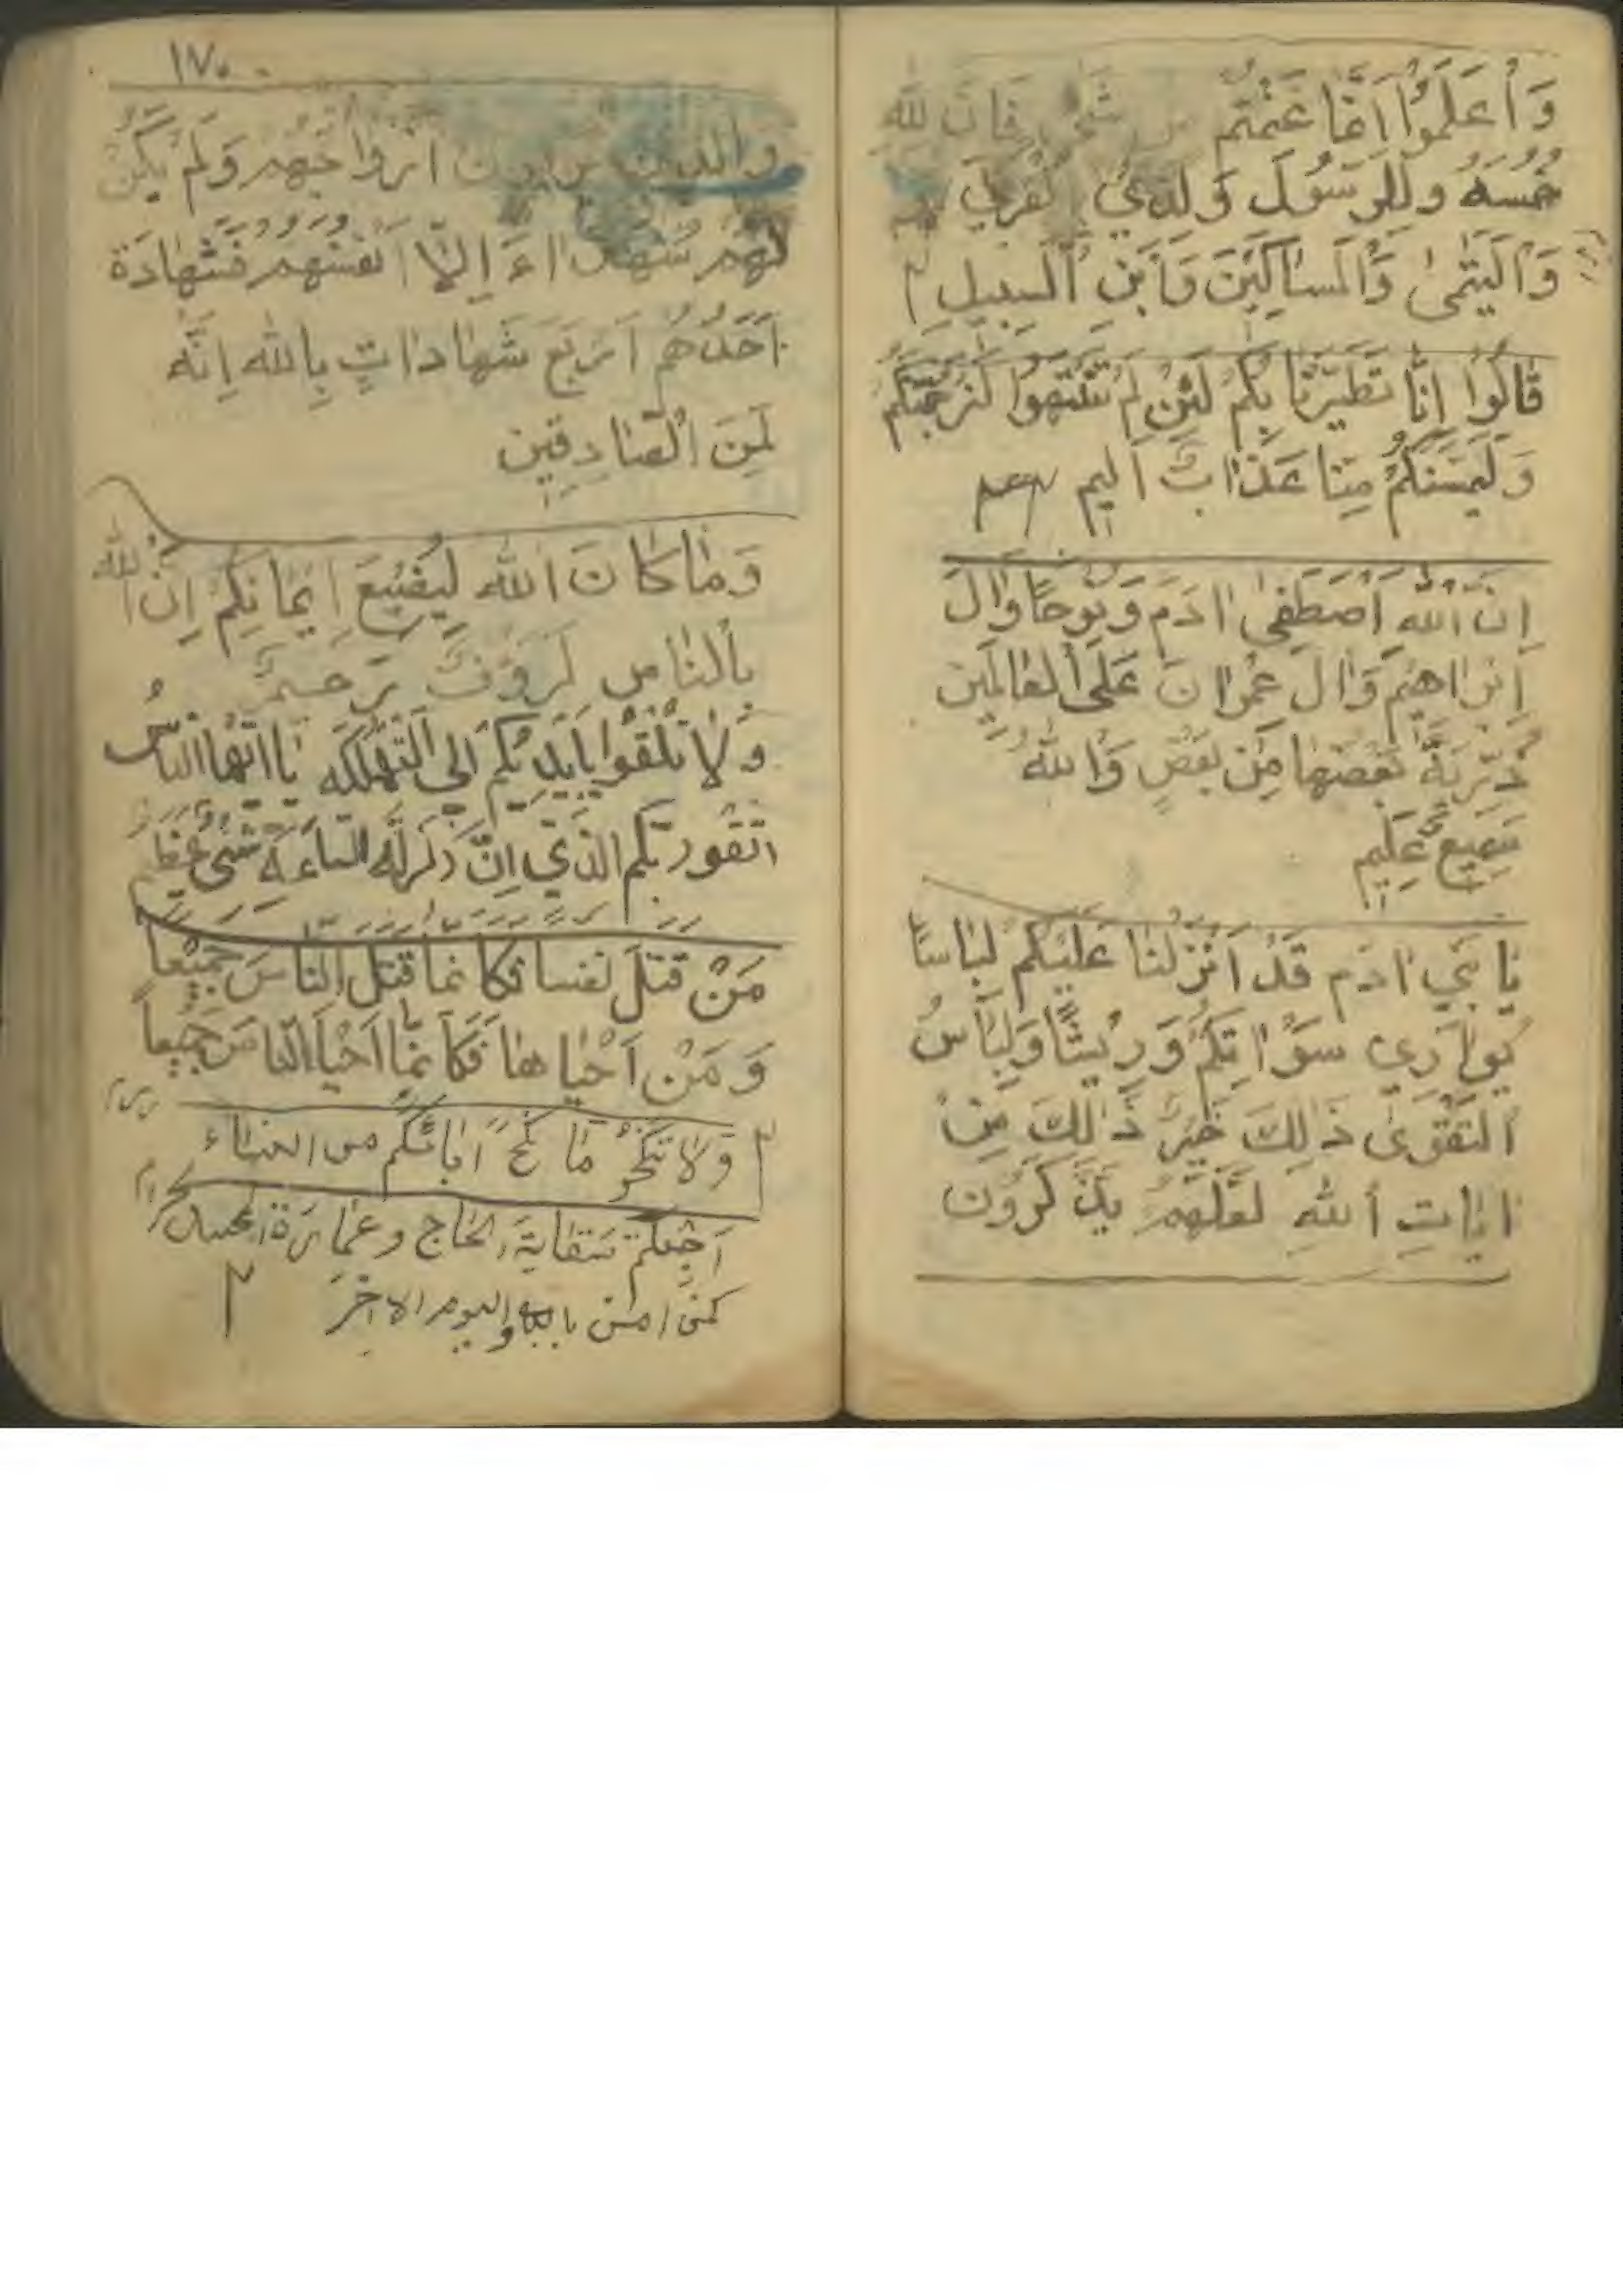 وَأعلَمُوا اَنَّمَا غَنِمْتُم مِن شَیْءٍ فَاَنَّ لِلّٰهِ
خُمُسَهُ وَلِلرَسُولَ وَلِذِي القُربیٰ
وَاليَتٰمىٰ وَالمَسٰاكينَ وَاَبنِ السَبيلِ
قٰالُوا اِنّٰا تَطَيَّرنٰا بِكُم لَئِن لَم تَنتَهوا لَنَرجُمَنَّكُم
وَلَيَمَسَنَّكُم مِنٰا عَذٰابٌ اَليم
اِنَّ اللّٰه اَصطَفیٰ اٰدَمَ وَنُوحاً وَاٰلَ
اِبراهيمَ وَاٰلَ عِمرٰانَ عَلَى العٰالَمين
ذُرّيَةً بَعضُهٰا مِن بَعضٍ وَاللّٰهُ
سَميعٌ عَليم
يٰا بَني اٰدَم قَد اَنزَلنٰا عَلَيكُم لِبٰاسًا
يُوارِي سَوْاٰتِكُم وَريشًا وَلِبٰاسُ
التَقْوىٰ ذٰلِكَ خَيرٌ ذٰلِكَ مِن
اٰيٰاتِ اللّٰهِ لَعَلَّهُم يَذَّكَرُون
١٧٠
وَالَّذينَ يَرمُونَ اَزوٰاجَهُم وَلَم يَكُن
لَهُم شُهَدٰاءَ اِلّا اَنفُسُهُم فَشَهٰادَة
اَحَدُهُم اَربَع شَهٰادٰاتٍ بِاللّٰه اِنَّه
لَمِنَ الصّٰادِقين
وَمٰا كٰانَ اللّٰه لِيُضيعَ اِيمٰانِكُم اِنَّ اللّٰه
بِالنّٰاسِ لَرَؤفٌ رَحيمٌ
وَلٰا تُلقُوا بِاَيديكُم اِلَى التَهلُكَه يٰا اَيُهَا النٰاسُ
اتَقُو رَبَكُم الذي اِنَّ زَلزَلَةَ السٰاعَة شَیء عَظيم
مَنْ قَتَلَ نَفسا فَكَاَنمٰا قَتَلَ النٰاسَ جَميعاً
وَ مَنْ اَحْيٰاهٰا فَكَاَنمٰا اَحيَا النٰاسَ جَميعاً
وَلٰا تَنكِحُو مٰا نَكَحَ اٰبائُكُم من النساء
اَجَعَلتُم سِقٰايَةَ الحاج وعمٰارَة المسجد الحرام
كمَن اٰمن بالله واليوم الاٰخِر